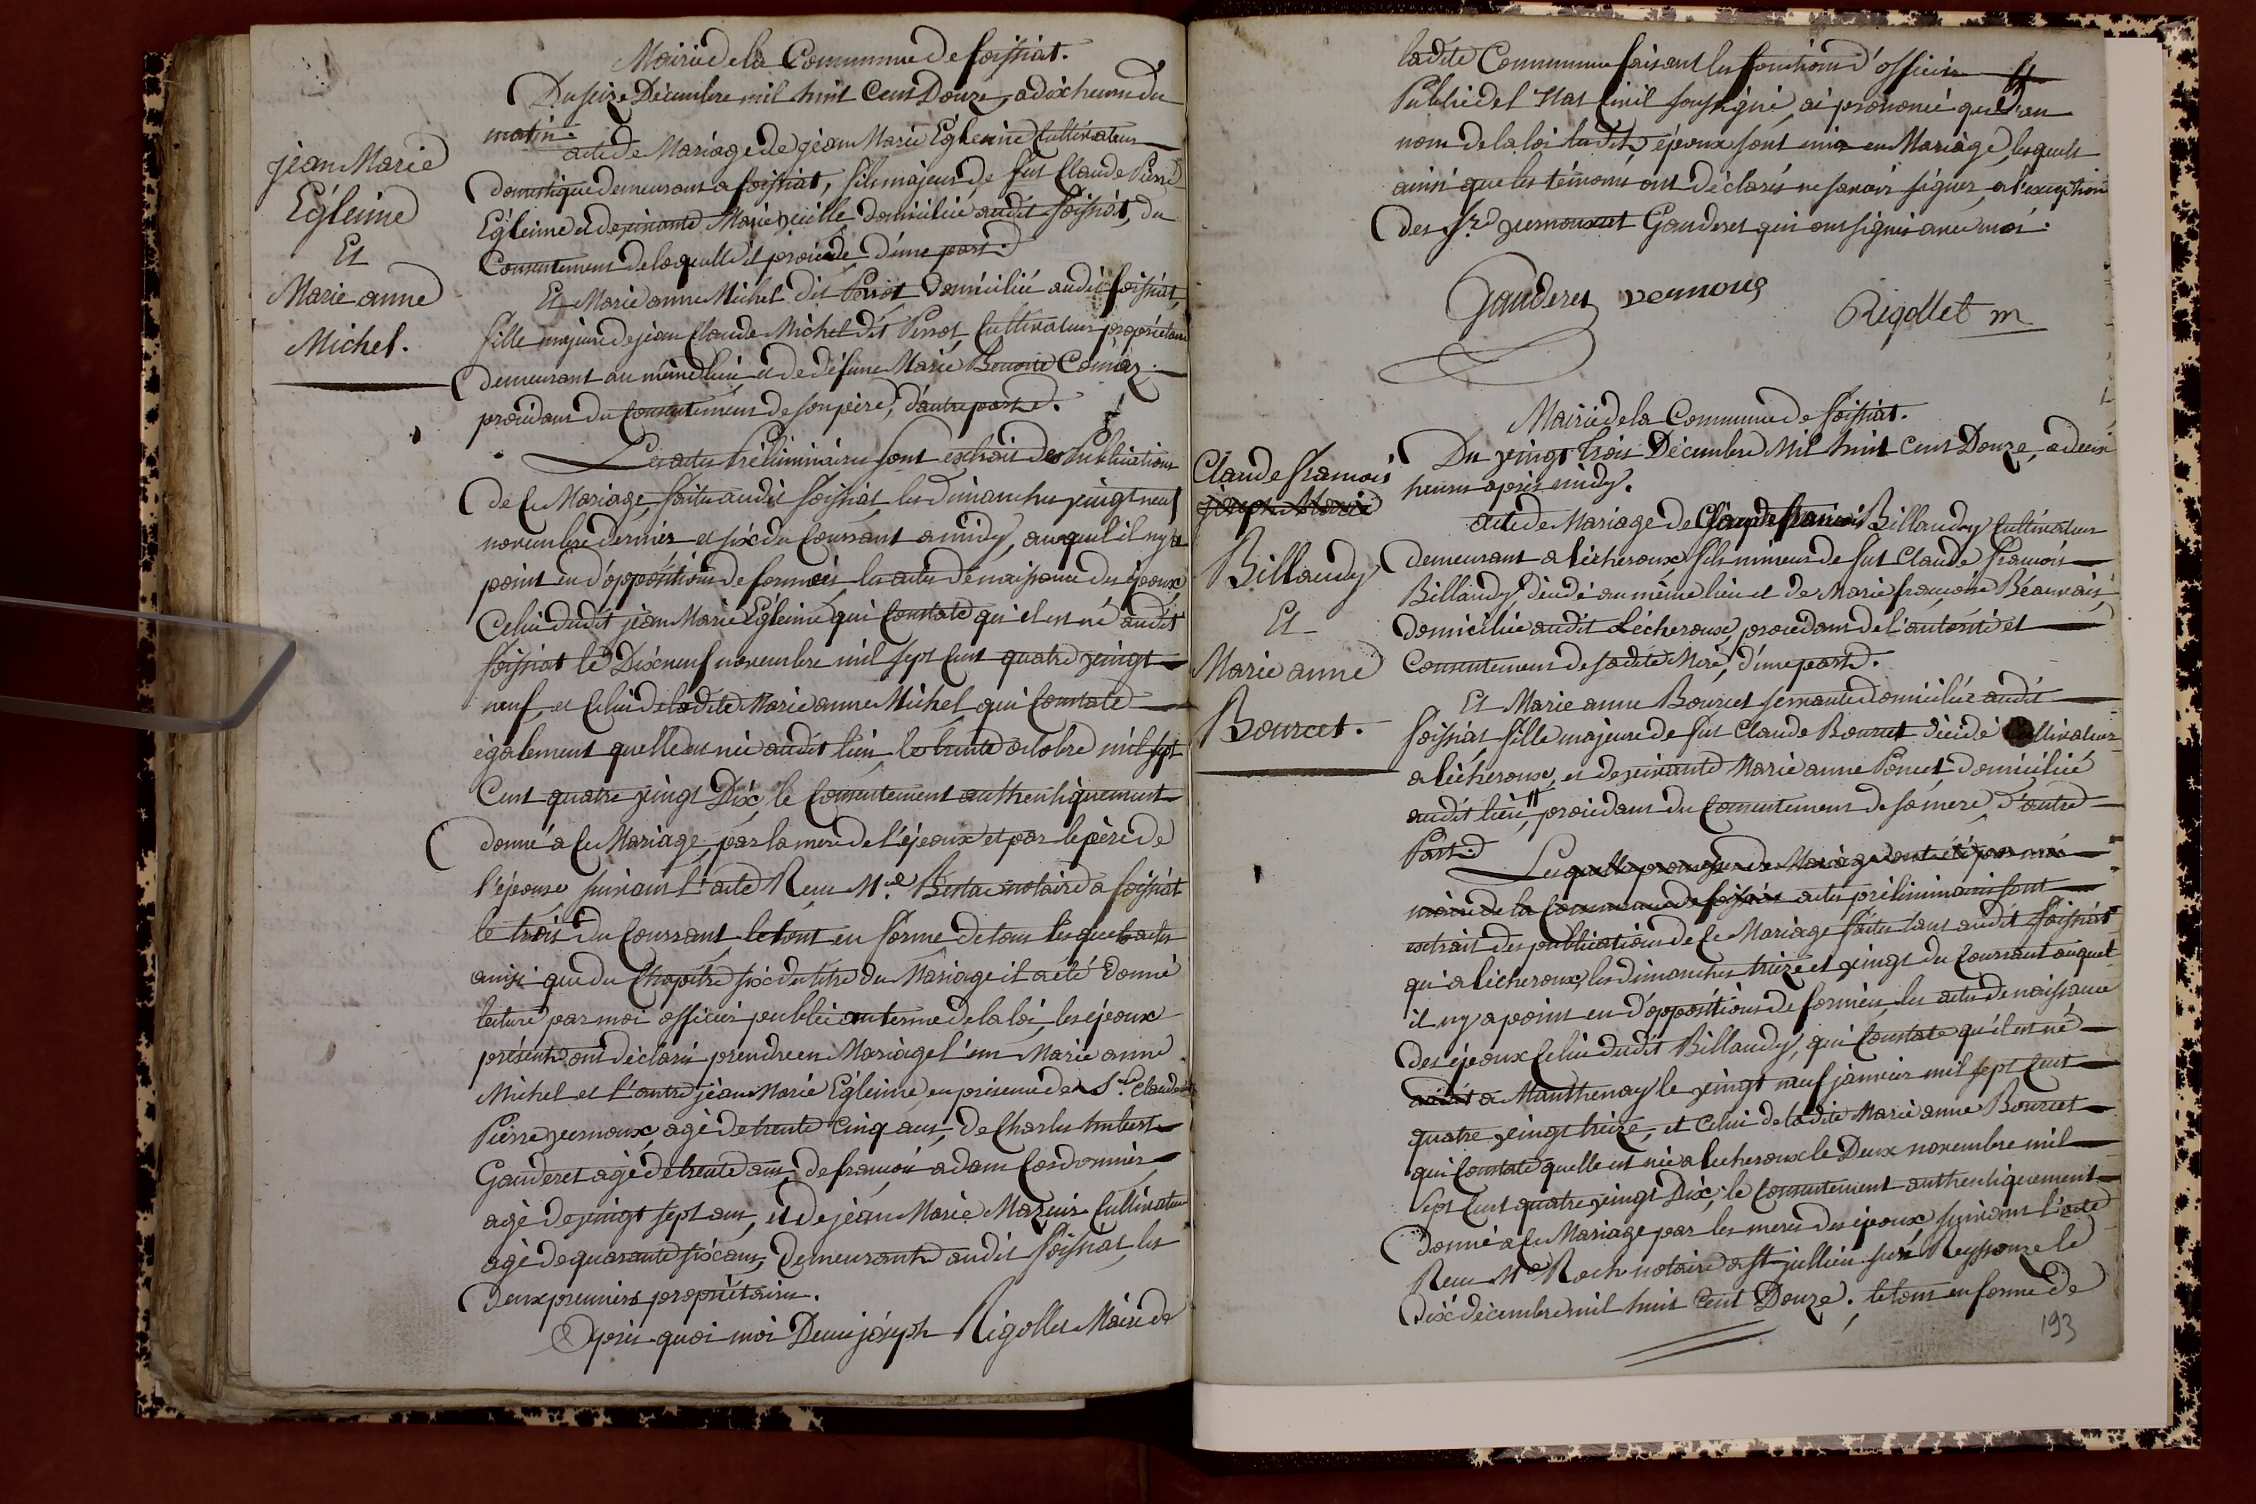 Mairie de la Commune de foissiat.
Du seize Décembre mil huit cent Douze, a dix heures du
matin.
acte de Mariage de jéan Marie Egleinie Cultivateur
jéan Marie
Egleinie
Et
Marie anne
Michel.
Domestique demeurant a foissiat, fils majeur de fut Claude Pierre
Egleinie et de vivante Marie veille domiciliée audit foissiat, du
Consentement de laquelle il procède d'une part.
Et Marie anne Michel dit Perrot domiciliée audit foissiat,
fille majeure de jéan Claude Michel dit Perrot, Cultivateur propriétaire
demeurant au même lieu, et de défunte Marie Benoite Comiaz.
procédant du Consentement de son père, d'autre part.
Les actes Préliminaires sont extrait des Publications
de ce Mariage, faites audit foissiat, les dimanches vingt neuf
novembre dernier et six du Courrant a midy, auquel il ny a
point eu d'oppositions de formées, les actes de naissance des époux,
Celui dudit jéan Marie Egleinie qui Constate qu'il est né audit
foissiat le Dix neuf novembre mil sept Cent quatre vingt
neuf, et Celui de ladite Marie anne Michel qui Constate
également quelle est née audit lieu le trente octobre mil sept
Cent quatre vingt Dix, le Consentement authentiquement
donné a ce Mariage, par la mere de l'époux et par le père de
l'épouse suivant l'acte Recu Me notaire a foissiat
le trois du Courrant le tout en forme de tous lesquels actes
ainsi que du Chapitre six du titre du Mariage il a été donné
lecture par moi officier public au terme de la loi, les époux
présents ont déclaré prendre en Mariage l'un Marie anne
Michel et l'autre jéan Marie Egleinie, en présence de Sr. Claude
Pierre vernoux, agé de trente cinq ans, de Charles hubert
Gauderet agé de trente ans, de francois adam Cordonnier
agé de vingt sept ans, et de jéan Marie Mazuir Cultivateur
agé de quarante six ans, demeurants audit foissiat, les
Deux premiers propriétaires.
Après quoi moi Denis joseph Rigollet Maire de
ladite Commune faisant les fonctions d'officier
Public de l'Etat Civil soussigné, ai prononcé qu'au
nom de la loi lesdits époux sont unis en Mariage, lesquels
ainsi que les témoins ont déclarés ne savoir signer, a l'exception
des Srs vernoux et Gauderet qui ont signés avec moi.
Gauderet vernoux
Rigollet m
Mairie de la Commune de foissiat.
Du vingt Trois Décembre Mil huit cent Douze, a deux
heures après midy.
Claude francois
joseph Marie
Billaudy
Et
Marie anne
Bourcet.
acte de Mariage de Claude francois Billaudy Cultivateur
demeurant a lécheroux, fils mineur de fut Claude francois
Billaudy, décédé au même lieu et de Marie francoise Béauvais,
domiciliée audit Lécheroux, procédant de l'autorité et
Consentement de sadite Mere, d'une part.
Et Marie anne Bourcet servante domiciliée audit
foissiat, fille majeure de fut Claude Bourcet décédé Cultivateur
a lécheroux, et de vivante Marie anne Poncet domiciliée
audit lieu, procédant du Consentement de sa mere, d'autre
Part.
Lesquelles promesses de Mariage ont été par moi
maire de la Commune de foissiat actes préliminaires sont
extrait des publications de ce Mariage faites tant audit foissiat
qu'a lécheroux, les dimanches treize et vingt du Courrant auquel
il ny a point eu d'oppositions de formées, les actes de naissance
des époux Celui dudit Billaudy, qui Constate qu'il est né
audit a Manthenay le vingt neuf janvier mil sept Cent
quatre vingt treize, et Celui de ladite Marie anne Bourcet
qui Constate quelle est née a lecheroux le Deux novembre mil
sept Cent quatre vingt Dix, le Consentement authentiquement
donné a ce Mariage par les meres des époux, suivant l'acte
Recu Me Roch notaire a St jullien sur Reyssouze le
Dix décembre mil huit Cent Douze. le tout en forme de
193